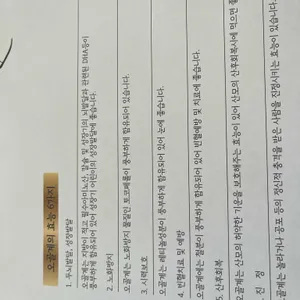 오골계의 효능 6가지
1. 두뇌발달, 성장발달
오골계는 지방이 적고 필수아미노산, 칼슘 및 성장기의 뇌발달과 관련된 DHA등이
풍부하게 함유되어 있어 성장기 어린이의 성장발달에 좋습니다.
2. 노화방지
오골계는 노화방지 물질인 토코페롤이 풍부하게 함유되어 있습니다.
3. 시력보호
오골계는 레티놀성분이 풍부하게 함유되어 있어 눈에 좋습니다.
4. 빈혈치료 및 예방
오골계에는 철분이 풍부하게 함유되어 있어 빈혈예방 및 치료에 좋습니다.
5. 산후회복
오골계는 산모의 허약한 기운을 보호해주는 효능이 있어 산모의 산후회복시에 먹으면 좋
진 정
오골계는 놀라거나 공포 등의 정신적 충격을 받은 사람을 진정시키는 효능이 있습니다.